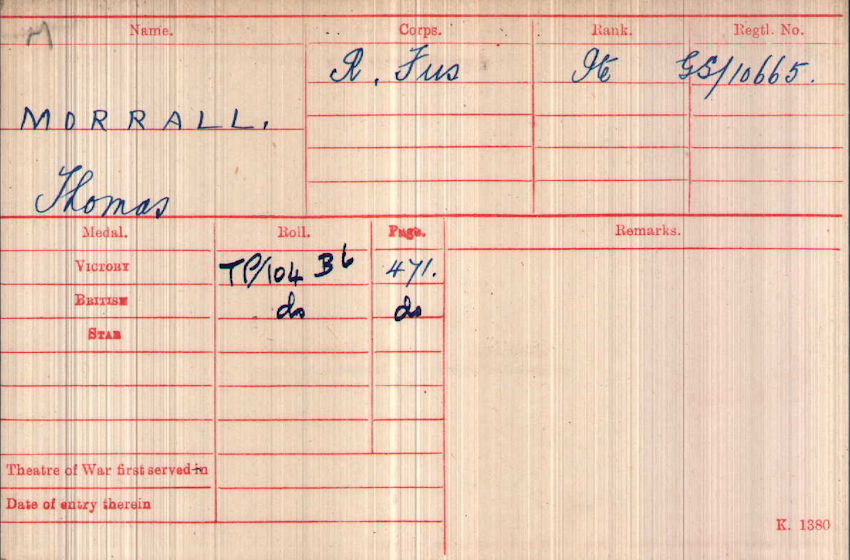 M
Name. Corps. Rank. Regtl. No.
R. Fus Pte GS/10665.
MORRALL.
Thomas
Medal. Roll. Page. Remarks.
VICTORY TP/104 B6 471.
BRITISH do do
STAR
Theatre of War first served in
Date of entry therein
K. 1380